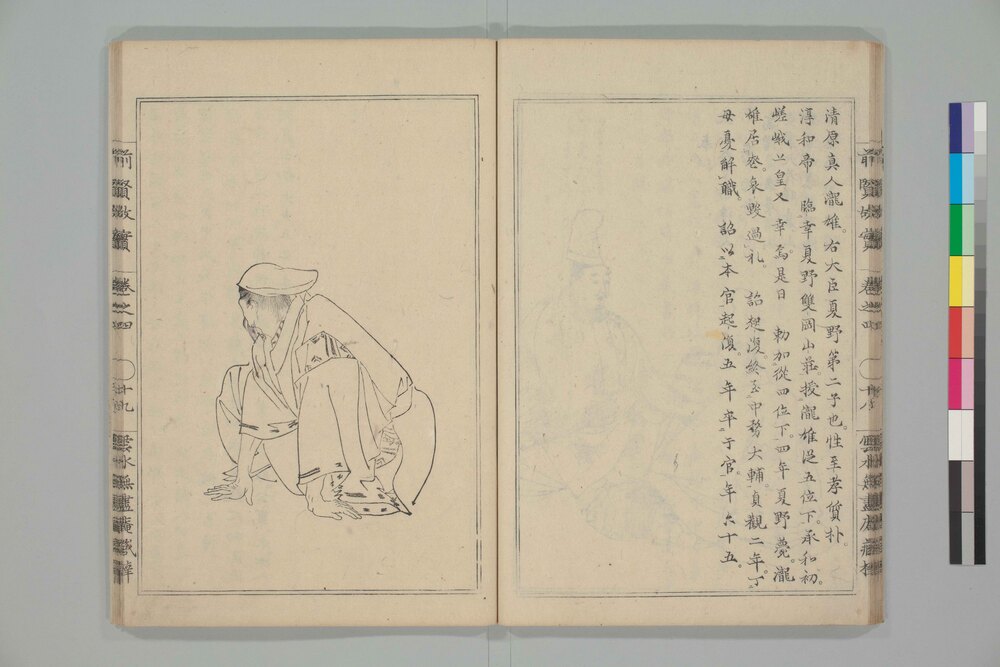 清原真人瀧雄。右大臣夏野第二子也。性至孝質朴。
淳和帝 臨幸夏野雙岡山莊。授瀧雄從五位下。承和初。
嵯峨上皇又 幸焉是日 勅加從四位下。四年夏野薨。瀧
雄居喪。哀毀過礼。 詔想復。終至中務大輔。貞觀二年。丁
母憂解職。 詔以本官起復。五年卒于官。年六十五。
前賢故實 卷之四
十九